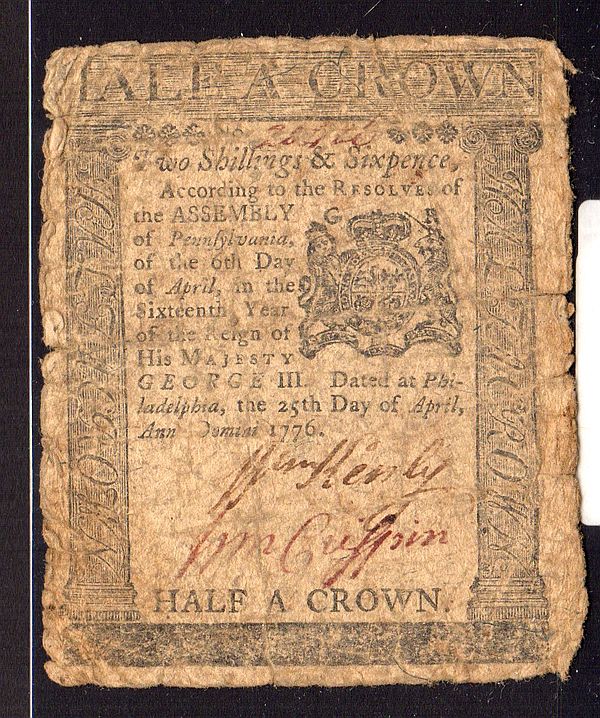 HALF A CROWN
No.
Two Shillings & Sixpence,
According to the RESOLVES of
the ASSEMBLY
of Pennſylvania,
of the 6th Day
of April, in the
Sixteenth Year
of the Reign of
His MAJESTY
GEORGE III. Dated at Phi-
ladelphia, the 25th Day of April,
Ann Domini 1776.
G R
Wm Kenly
Wm Crispin
HALF A CROWN.
HALF A CROWN
HALF A CROWN